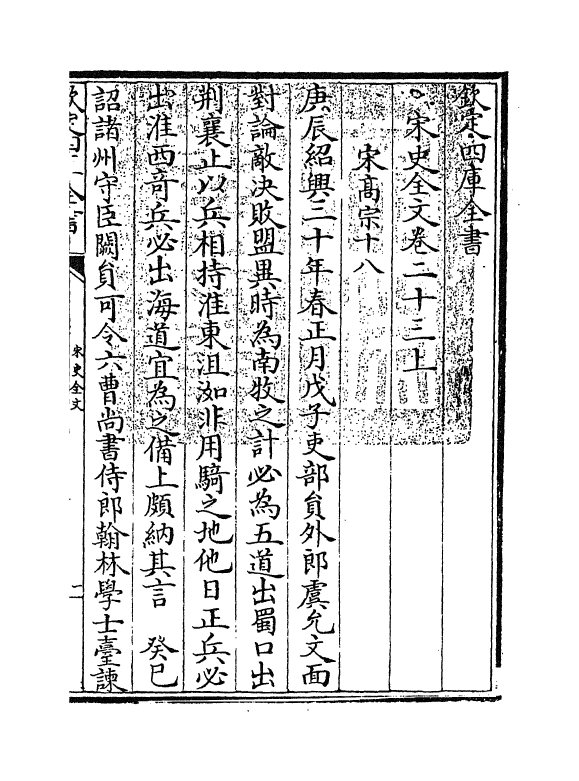 欽定四庫全書
宋史全文卷二十三上
宋高宗十八
庚辰紹興三十年春正月戊子吏部員外郎虞允文面
對論敵決敗盟異時為南牧之計必為五道出蜀口出
荆襄止以兵相持淮東沮洳非用騎之地他日正兵必
出淮西奇兵必出海道宜為之備上頗納其言 癸巳
詔諸州守臣闕員可令六曹尚書侍郎翰林學士臺諫
欽定四庫全書
宋史全文